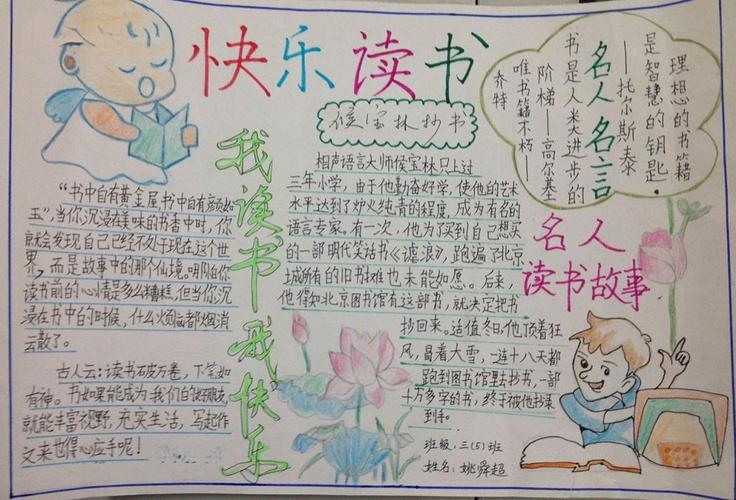 快乐读书
侯宝林抄书
相声语言大师侯宝林只上过
三年小学，由于他勤奋好学，使他的艺术
水平达到了炉火纯青的程度，成为有名的
语言专家。有一次，他为了买到自己想买
的一部明代笑话书《谑浪》，跑遍了北京
城所有的旧书摊也未能如愿。后来，
他得知北京图书馆有这部书，就决定把书
抄回来。适值冬日，他顶着狂
风，冒着大雪，一连十八天都
跑到图书馆里去抄书，一部
十万多字的书，终于被他抄录
到手。
班级：三(5)班
姓名：姚舜超
理想的书籍
是智慧的钥匙.
——托尔斯泰
名人名言
书是人类进步的
阶梯——高尔基
唯书籍不朽——
乔特
名人
读书故事
我读书我快乐
“书中自有黄金屋书中自有颜如
玉”，当你沉浸在美味的书香中时，你
就会发现自己已经不处于现在这个世
界，而是故事中的那个仙境。哪怕在你
读书前的心情是多么糟糕，但当你沉
浸在书中的时候，什么火恼都烟消
云散了。
古人云：读书破万卷，下笔如
有神。书如果能成为我们的好朋友，
就能丰富视野，充实生活，写起作
文来也得心应手呢！